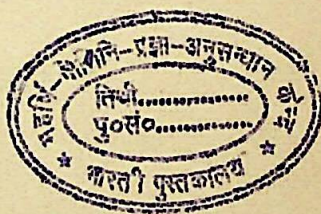 महर्षि-जैमिनि-प्रज्ञा-अनुसन्धान केन्द्र
तिथी..................
पु०सं०..................
* भारती पुस्तकालय *